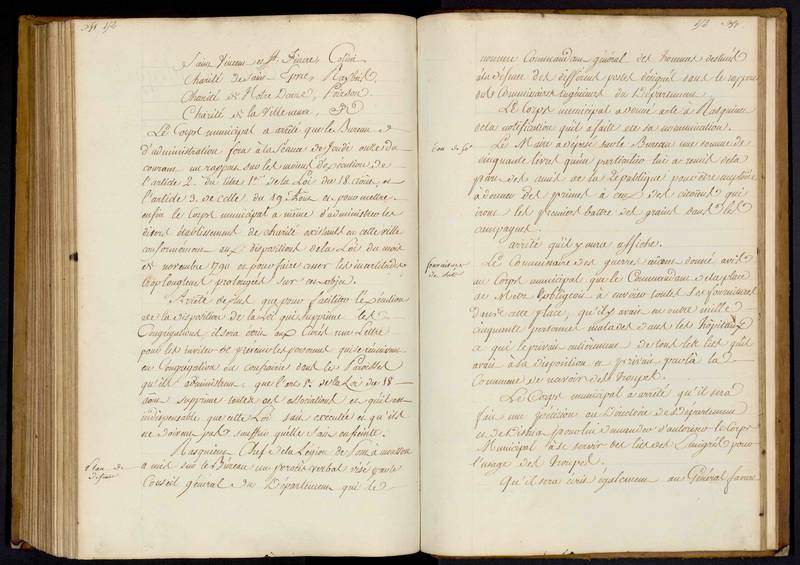 Saint Vincent et St. fiacre, Collin
Charité de Saint
Charité de Notre Dame, Poirson
Charité de la Villeneuve,
Le Corps municipal a arrêté que le Bureau
d'administration fera à la Séance de Jeudi onze du
courant un rapport sur les moiens d'exécution de
l'article 2. du titre 1er de la Loi du 18. aout, et
l'article 3. de celle du 19. et pour mettre
enfin le Corps municipal à même d'administrer les
divers établissement de charité existants en cette ville
conformément aux dispositions de la Loi du mois
de novembre 1790 et pour faire cesser les incertitudes
trop longtems prolongées sur cet objet.
Arrête de plus que pour faciliter l'exécution
de la disposition de la Loi qui supprime les
Congrégations, il sera écrit aux Curés une Lettre
pour les inviter de prévenir les personnes qui se réunissent
en Congrégation ou confrairie dans les Paroisses
qu'ils administrent que l'art. 1er de la Loi du 18
aout supprime toutes ces associations et qu'il est
indispensable que cette Loi soit exécutée et qu'ils
ne doivent pas souffrir qu'elle soit enfreinte.
Plan de
défense
Chef de la Légion de
a mis sur le Bureau un procès verbal visé par le
Conseil général du Département qui le
nomme Commandant général des hommes destinés
à la défense des différents postes désignés sous le rapport
des Commissaires Ingénieurs du Département.
Le Corps municipal a donné acte à
de la notification qu'il a faite de sa nomination.
Le Maire a déposé sur le Bureau une somme de
cinquante livres qu'un particulier lui a remis de la
part des amis de la République pour être emploiée
à donner des primes à ceux des citoiens qui
iront les premiers battre des grains dans les
campagnes.
arrêté qu'il y aura affiche.
fourniture
de lits
Le Commissaire des guerres aiant donné avis
au Corps municipal que le Commandant de la place
de Metz l'obligeait à envoier toutes les fournitures
dans cette place, qu'il y avait en outre mille
cinquante personnes malades dans les hôpitaux
ce qui le privait entièrement de tous les lits qu'il
avait à la disposition et privait par là la
Commune de ravoir des troupes.
Le Corps municipal a arrêté qu'il sera
fait une pétition au Directoire de Département
et de District pour lui demander d'autoriser le Corps
Municipal à se servir des lits des Emigrés pour
l'usage des troupes.
Qu'il sera écrit également au Général